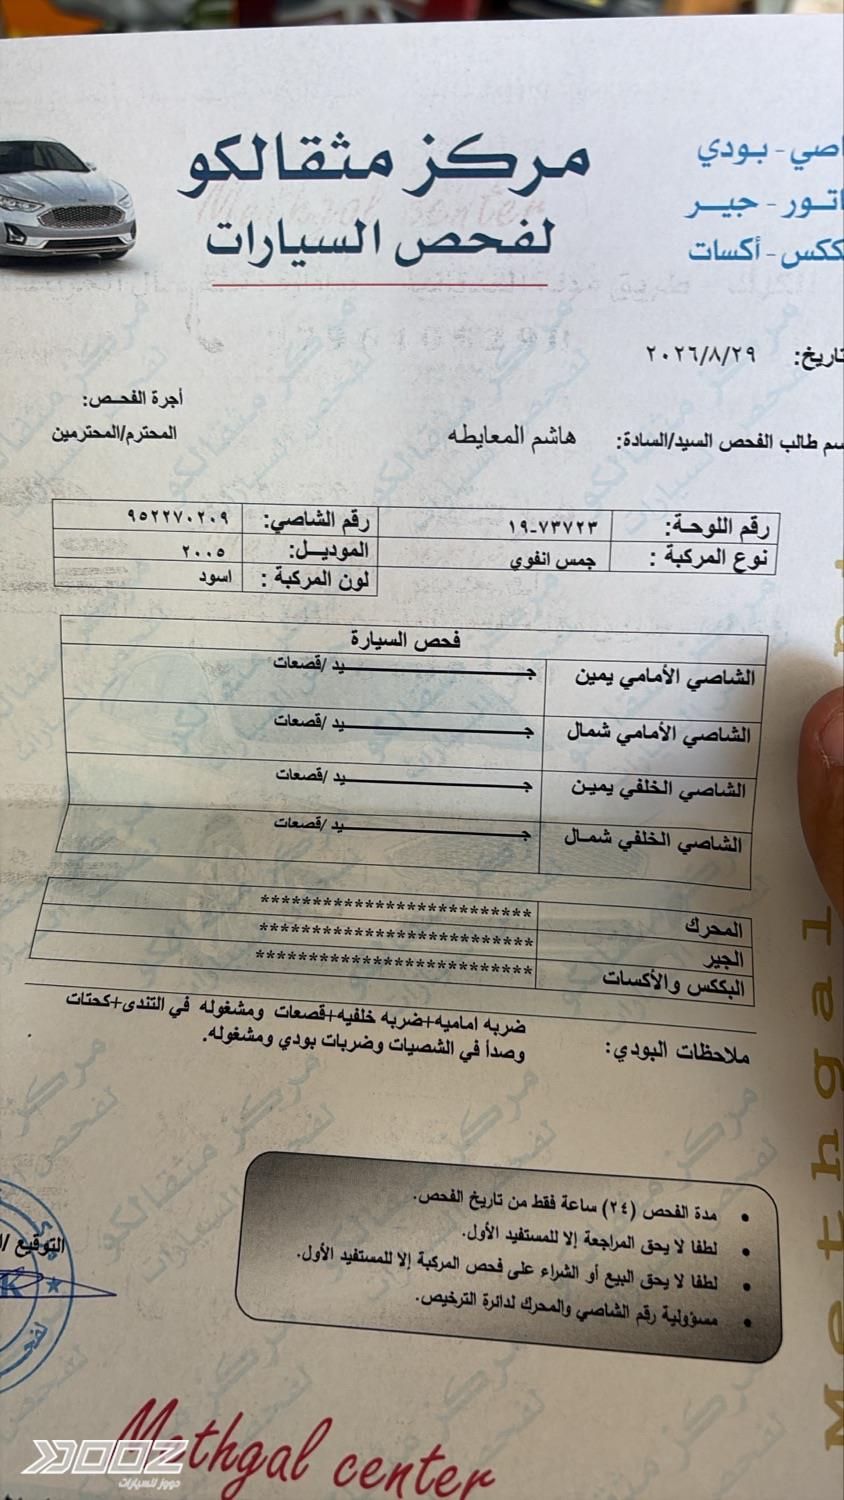 مركز مثقالكو
لفحص السيارات
اصي - بودي
اتور - جير
ككس - أكسات
Methgal center
تاريخ: ٢٠٢٦/٨/٢٩
أجرة الفحص:
سم طالب الفحص السيد/السادة: هاشم المعايطه المحترم/المحترمين
رقم اللوحة: ١٩-٧٣٧٢٣ رقم الشاصي: ٩٥٢٢٧٠٢٠٩
نوع المركبة : جمس انفوي الموديل: ٢٠٠٥
لون المركبة : اسود
فحص السيارة
الشاصي الأمامي يمين جـــــيد /قصعات
الشاصي الأمامي شمال جـــــيد /قصعات
الشاصي الخلفي يمين جـــــيد /قصعات
الشاصي الخلفي شمال جـــــيد /قصعات
المحرك **************************
الجير **************************
البككس والأكسات **************************
ملاحظات البودي: ضربه اماميه+ضربه خلفيه+قصعات ومشغوله في التندى+كحتات
وصدأ في الشصيات وضربات بودي ومشغوله.
• مدة الفحص (٢٤) ساعة فقط من تاريخ الفحص.
• لطفا لا يحق المراجعة إلا للمستفيد الأول.
• لطفا لا يحق البيع أو الشراء على فحص المركبة إلا للمستفيد الأول.
• مسؤولية رقم الشاصي والمحرك لدائرة الترخيص.
التوقيع /
Methgal center
Methgal
DOOZ
دووز للسيارات